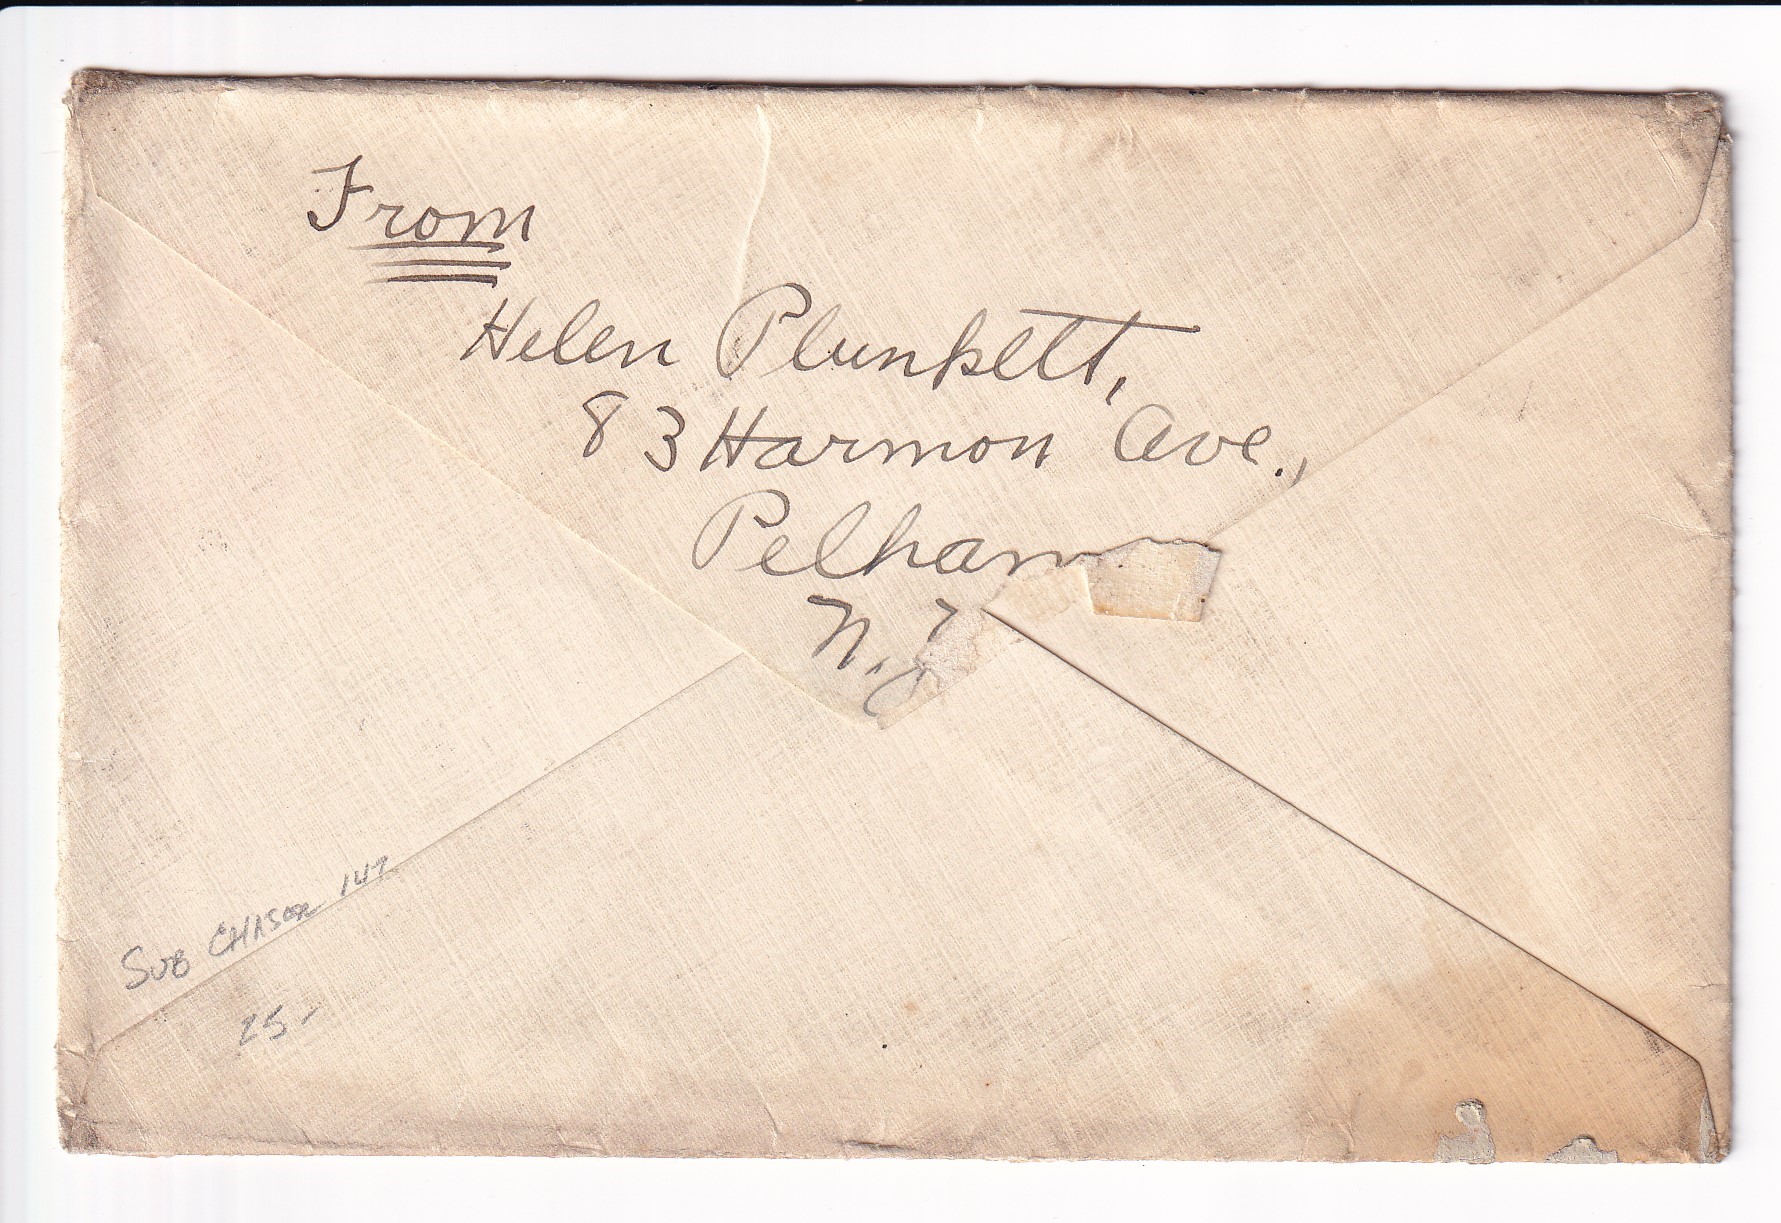 From
Helen Plunkett,
83 Harmon Ave.,
Pelham
N.Y
SUB CHASER 147
25-